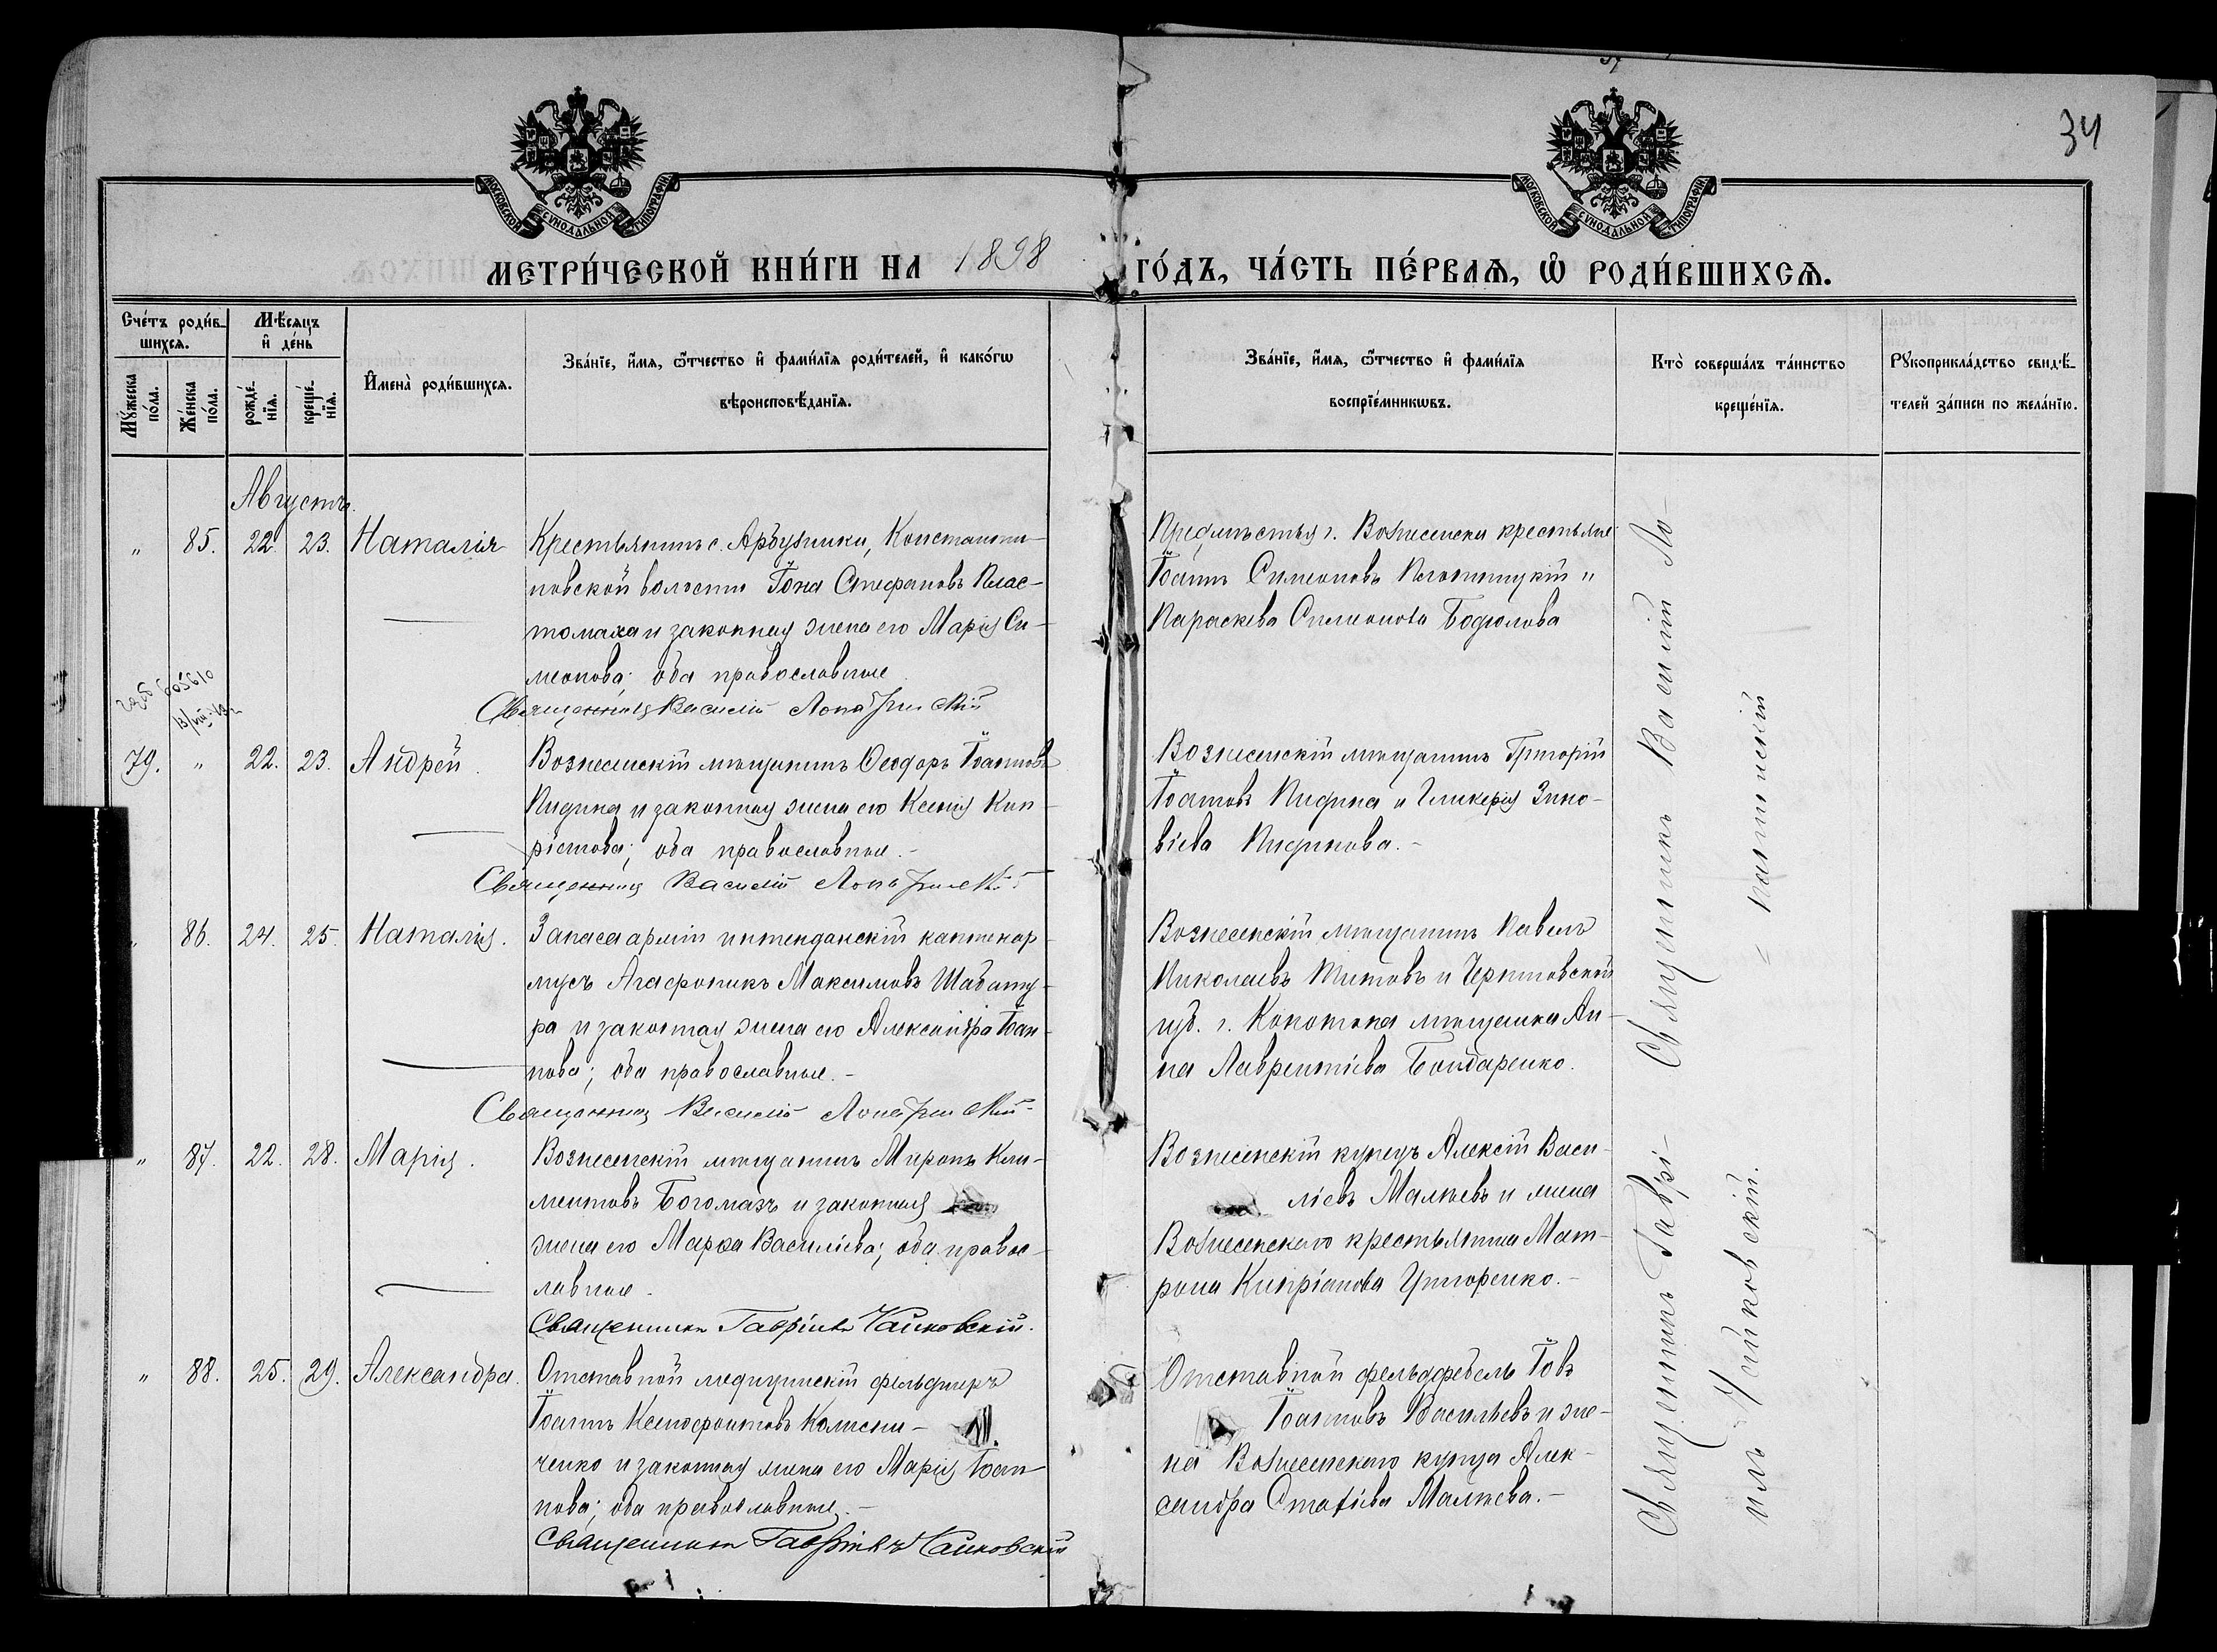 34
МОСКОВСКОЙ СѴНОДАЛЬНОЙ ТИПОГРАФІИ
МОСКОВСКОЙ СѴНОДАЛЬНОЙ ТИПОГРАФІИ
МЕТРИ́ЧЕСКОЙ КНИ́ГИ НА 1898 ГО́ДЪ, ЧА́СТЬ ПЕ́РВАѦ, Ѽ РОДИ́ВШИХСѦ.
Сче́тъ роди́в-
шихсѧ.
Мꙋ́жеска
по́ла.
Же́нска
по́ла.
Мѣ́сѧцъ
и҆ де́нь
рожде́-
нїѧ.
креще́-
нїѧ.
И҆мена̀ роди́вшихсѧ.
Зва́нїе, и҆́мѧ, ѻ҆́тчество и҆ фами́лїѧ роди́телей, и҆ како́гѡ
вѣроисповѣ́данїѧ.
Зва́нїе, и҆́мѧ, ѻ҆́тчество и҆ фами́лїѧ
воспрїе́мникѡвъ.
Кто̀ соверша́лъ та́инство
креще́нїѧ.
Рꙋкоприкла́дство свидѣ́-
телей за́писи по жела́нїю.
Августъ.
" 85. 22. 23. Наталія
Крестьянинъ с. Арбузинки, Константи-
новской волости Іона Стефановъ Плас-
томаха и законная жена его Марія Си-
меонова; оба православные
Священникъ Василій Лопатинскій
Предмѣстья г. Вознесенска крестьяне
Іоаннъ Симеоновъ и
Параскева Симеонова Бодюлова
605610
79. " 22. 23. Андрей.
Вознесенскій мѣщанинъ Ѳеодоръ Іоанновъ
Пидина и законная жена его Ксенія Кип-
ріанова; оба православные.-
Священникъ Василій Лопатинскій
Вознесенскій мѣщанинъ Григорій
Іоанновъ Пидина и Гликерія Зино-
віева Пидинова.-
" 86. 24. 25. Наталія.
Запаса арміи интендантскій каптенар-
мусъ Агафоникъ Максимовъ Шабату-
ра и законная жена его Александра Іоан-
нова; оба православные.-
Священникъ Василій Лопатинскій
Вознесенскій мѣщанинъ Павелъ
Николаевъ Титовъ и Черниговской
губ. г. Конотопа мѣщанка Ан-
на Лаврентіева Бондаренко.
" 87. 22. 28. Марія.
Вознесенскій мѣщанинъ Миронъ Кли-
ментовъ Богомазъ и законная
жена его Марѳа Василіева; оба правос-
лавные.
Священникъ Гавріилъ Чайковскій.
Вознесенскій купецъ Алексій Васи-
ліевъ Малѣевъ и жена
Вознесенскаго крестьянина Мат-
рона Кипріанова Григоренко.-
" 88. 25. 29. Александра.
Отставной медицинскій фельдшеръ
Іоаннъ Ксенофонтовъ Колисни-
ченко и законная жена его Марія Іоан-
нова; оба православные.-
Священникъ Гавріилъ Чайковскій
Отставной фельдфебель Іовъ
Іоанновъ Васильевъ и же-
на Вознесенскаго купца Алек-
сандра Статіева Малѣева.-
Священникъ Василій Ло-
патинскій
Священникъ Гаврі-
илъ Чайковскій.